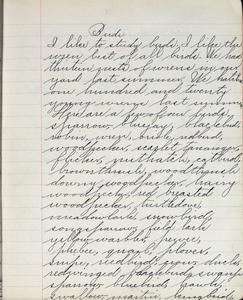 Birds
I like to study birds, I like the
wren best of all birds. We had
thirteen nests of wrens in our
yard last summer. We hatched
one hundred and twenty
young wrens last summer.
Here are a few of our birds,
sparrow, bluejay, blackbird,
robin, wren, oriole, redbird,
woodpecker, scarlet tanager,
flicker, nuthatch, catbird,
brown thrush, woodthrush
downy woodpecker, hairy
woodpecker, red breasted
woodpecker, turtledove,
meadowlark, snowbird,
song sparrow, field lark
yellow warbler, pewee,
phebee, quail, plover,
snipe, reedbird, geese, ducts,
redwinged blackbird, swamp
sparrow, bluebirds, hawk,
swallow, martin, kingbird,